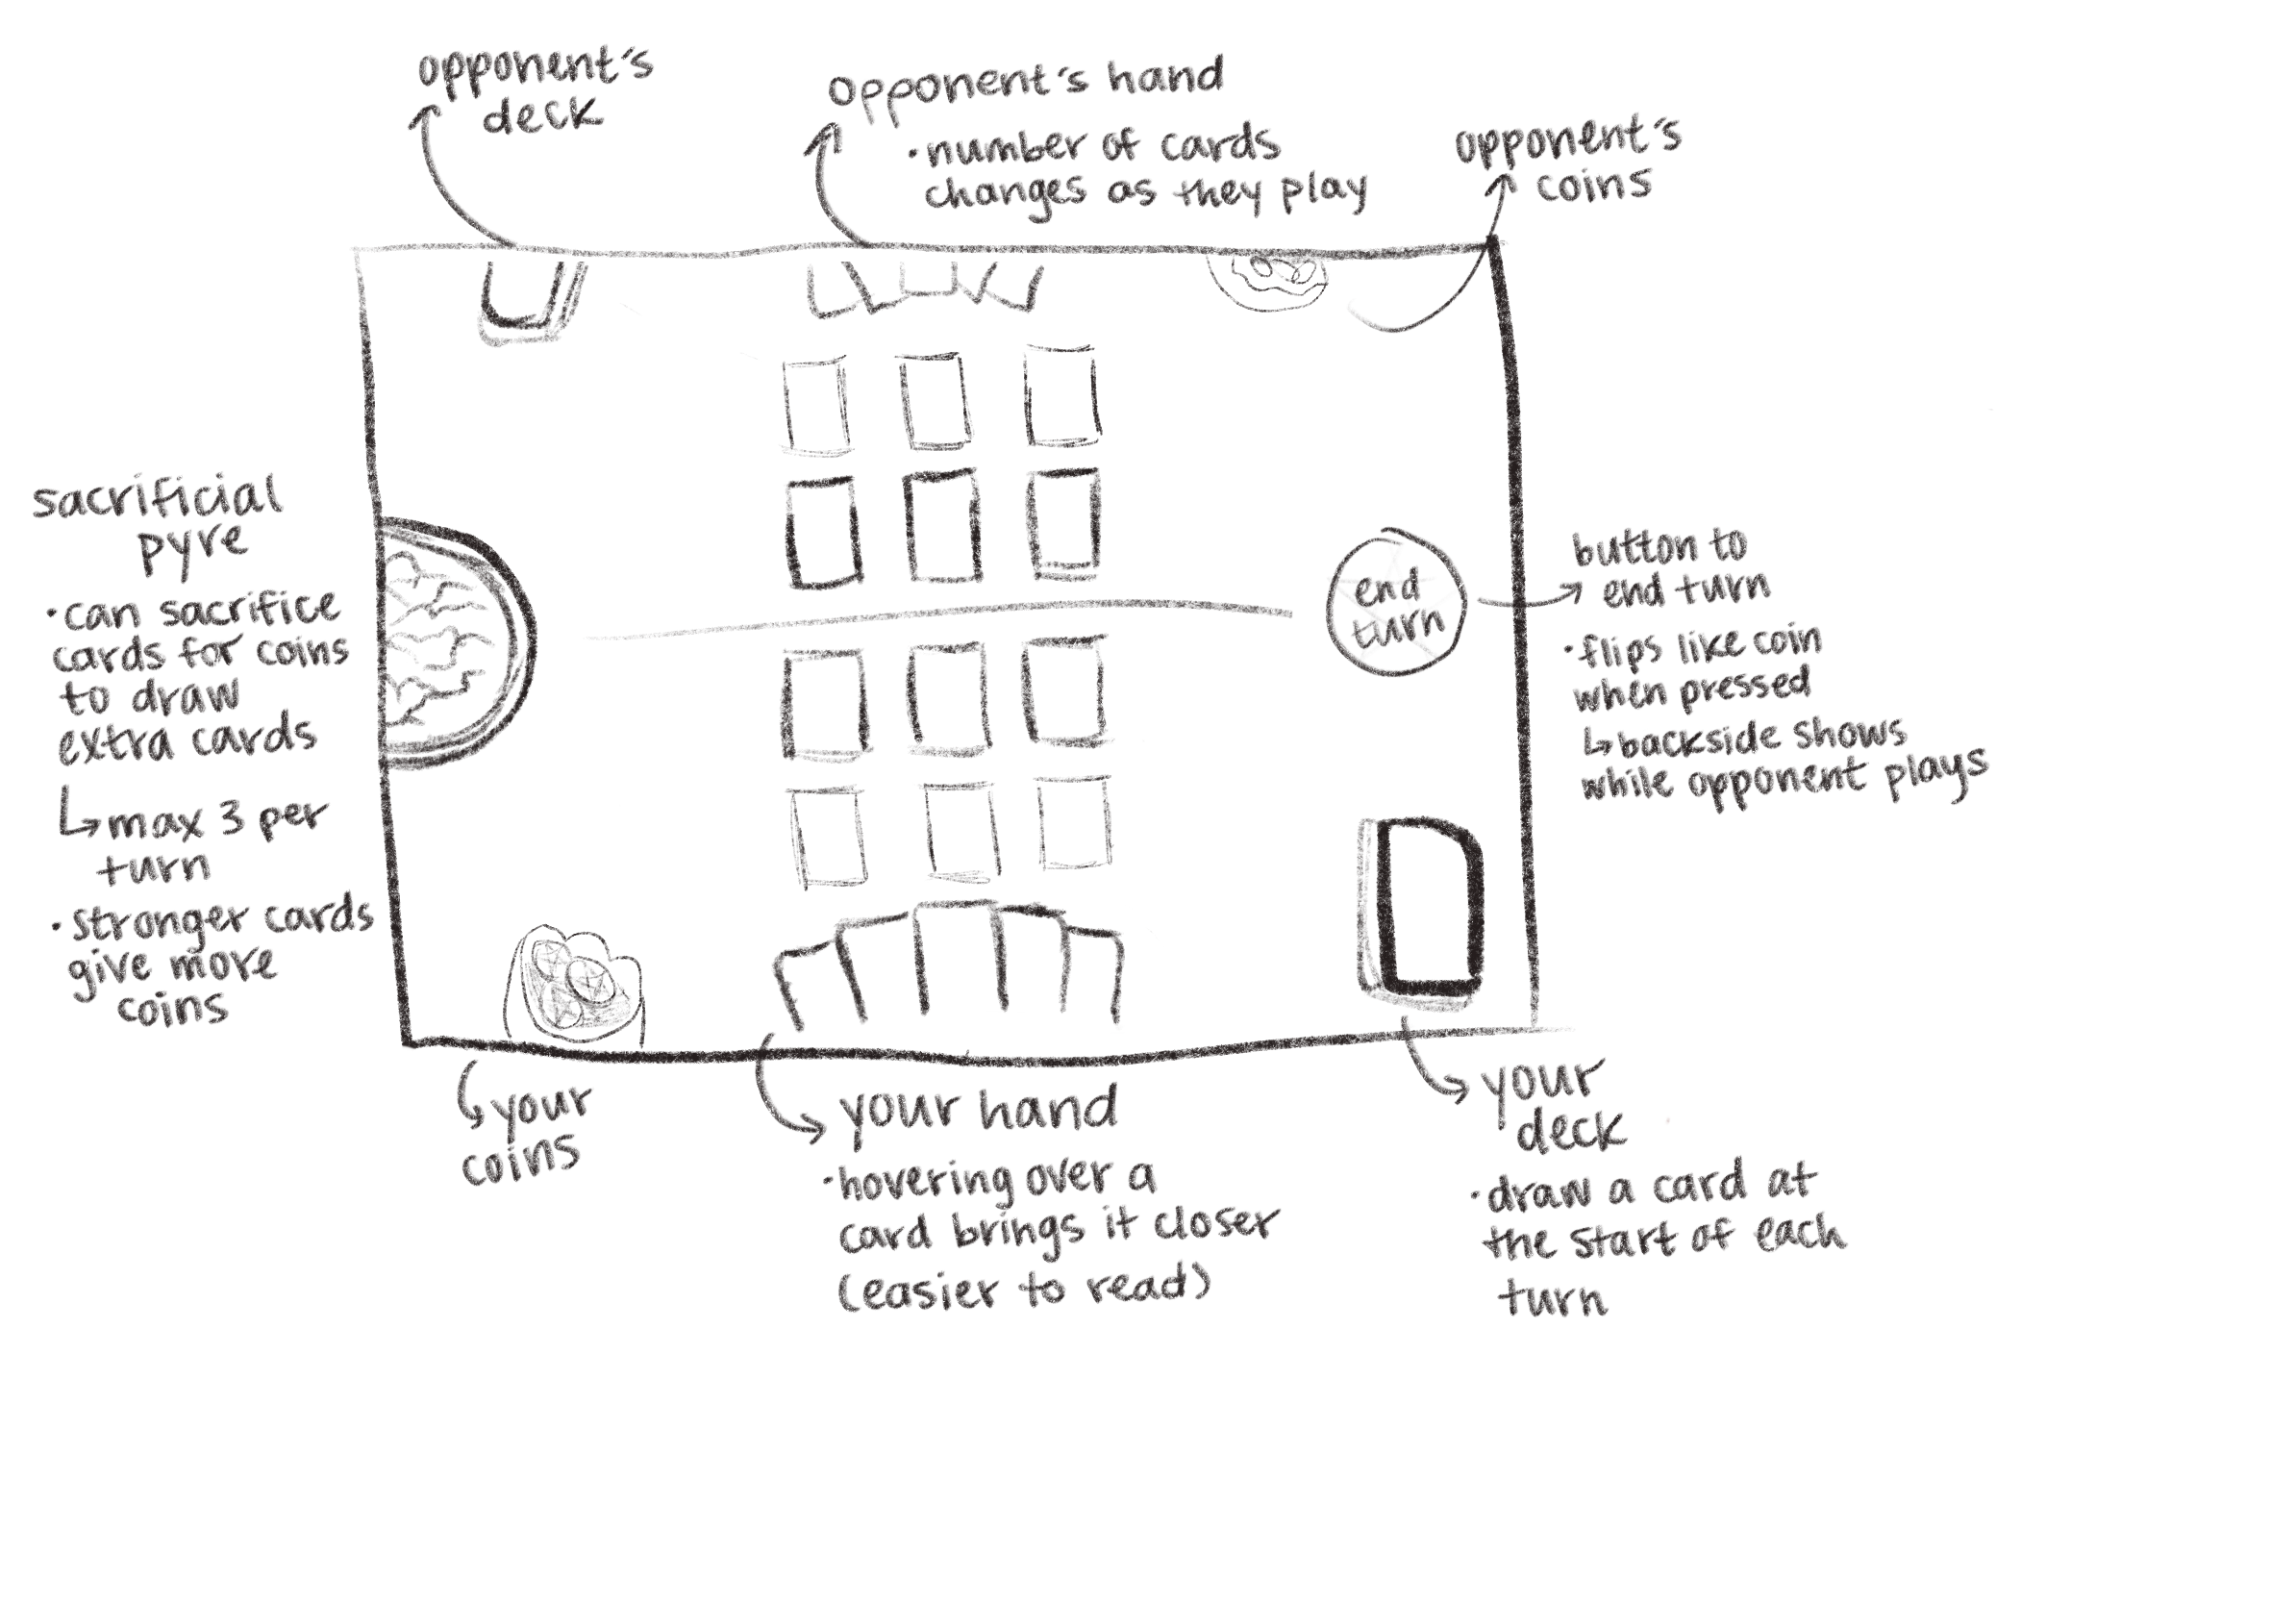 opponent's
deck
opponent's hand
·number of cards
changes as they play
opponent's
coins
sacrificial
pyre
·can sacrifice
cards for coins
to draw
extra cards
↳max 3 per
turn
·stronger cards
give more
coins
end
turn
button to
end turn
·flips like coin
when pressed
↳backside shows
while opponent plays
your
coins
your hand
·hovering over a
card brings it closer
(easier to read)
your
deck
·draw a card at
the start of each
turn